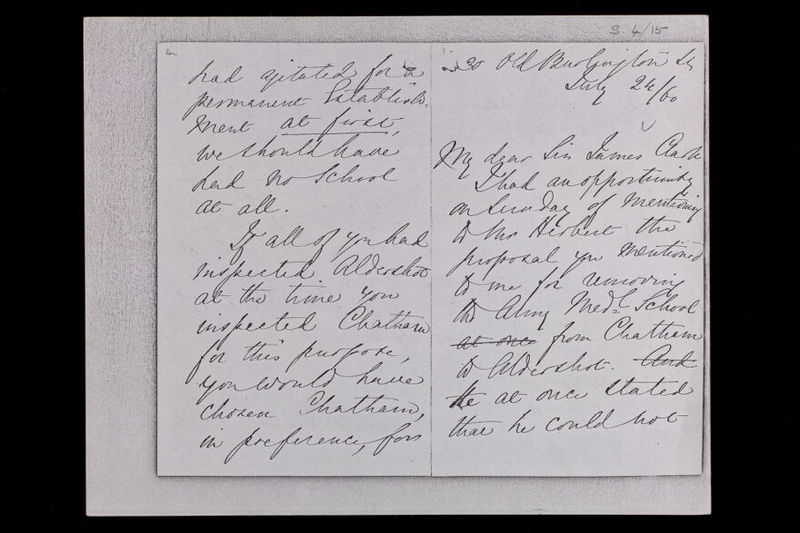 S. 4/15
4
had agitated for a
permanent Establish-
ment at first,
we should have
had no School
at all.
If all of you had
inspected Aldershot
at the time you
inspected Chatham
for this purpose,
you would have
chosen Chatham,
in preference, for
30 Old Burlington St
July 24/60
My dear Sir James Clark
I had an opportunity
on Sunday of mentioning
to Mr Herbert the
proposal you mentioned
to me for removing
the Army Medl School
at once from Chatham
to Aldershot. And
He at once stated
that he could not